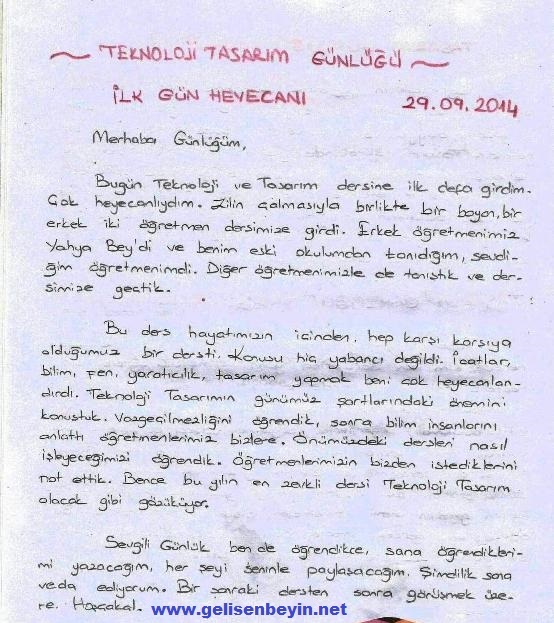 ~ TEKNOLOJİ TASARIM GÜNLÜĞÜ ~
İLK GÜN HEYECANI 29.09.2014
Merhaba Günlüğüm,
Bugün Teknoloji ve Tasarım dersine ilk defa girdim.
Çok heyecanlıydım. Zilin çalmasıyla birlikte bir bayan, bir
erkek iki öğretmen dersimize girdi. Erkek öğretmenimiz
Yahya Bey'di ve benim eski okulumdan tanıdığım, sevdi-
ğim öğretmenimdi. Diğer öğretmenimizle de tanıştık ve der-
simize geçtik.
Bu ders hayatımızın içinden, hep karşı karşıya
olduğumuz bir dersti. Konusu hiç yabancı değildi. İcatlar,
bilim, fen, yaratıcılık, tasarım yapmak beni çok heyecanlan-
dırdı. Teknoloji Tasarımın günümüz şartlarındaki önemini
konuştuk. Vazgeçilmezliğini öğrendik, sonra bilim insanlarını
anlattı öğretmenlerimiz bizlere. Önümüzdeki dersleri nasıl
işleyeceğimizi öğrendik. Öğretmenlerimizin bizden istediklerini
not ettik. Bence bu yılın en zevkli dersi Teknoloji Tasarım
olacak gibi gözüküyor.
Sevgili Günlük ben de öğrendikçe, sana öğrendikleri-
mi yazacağım, her şeyi seninle paylaşacağım. Şimdilik sana
veda ediyorum. Bir sonraki dersten sonra görüşmek üze-
re. Hoşçakal. www.gelisenbeyin.net